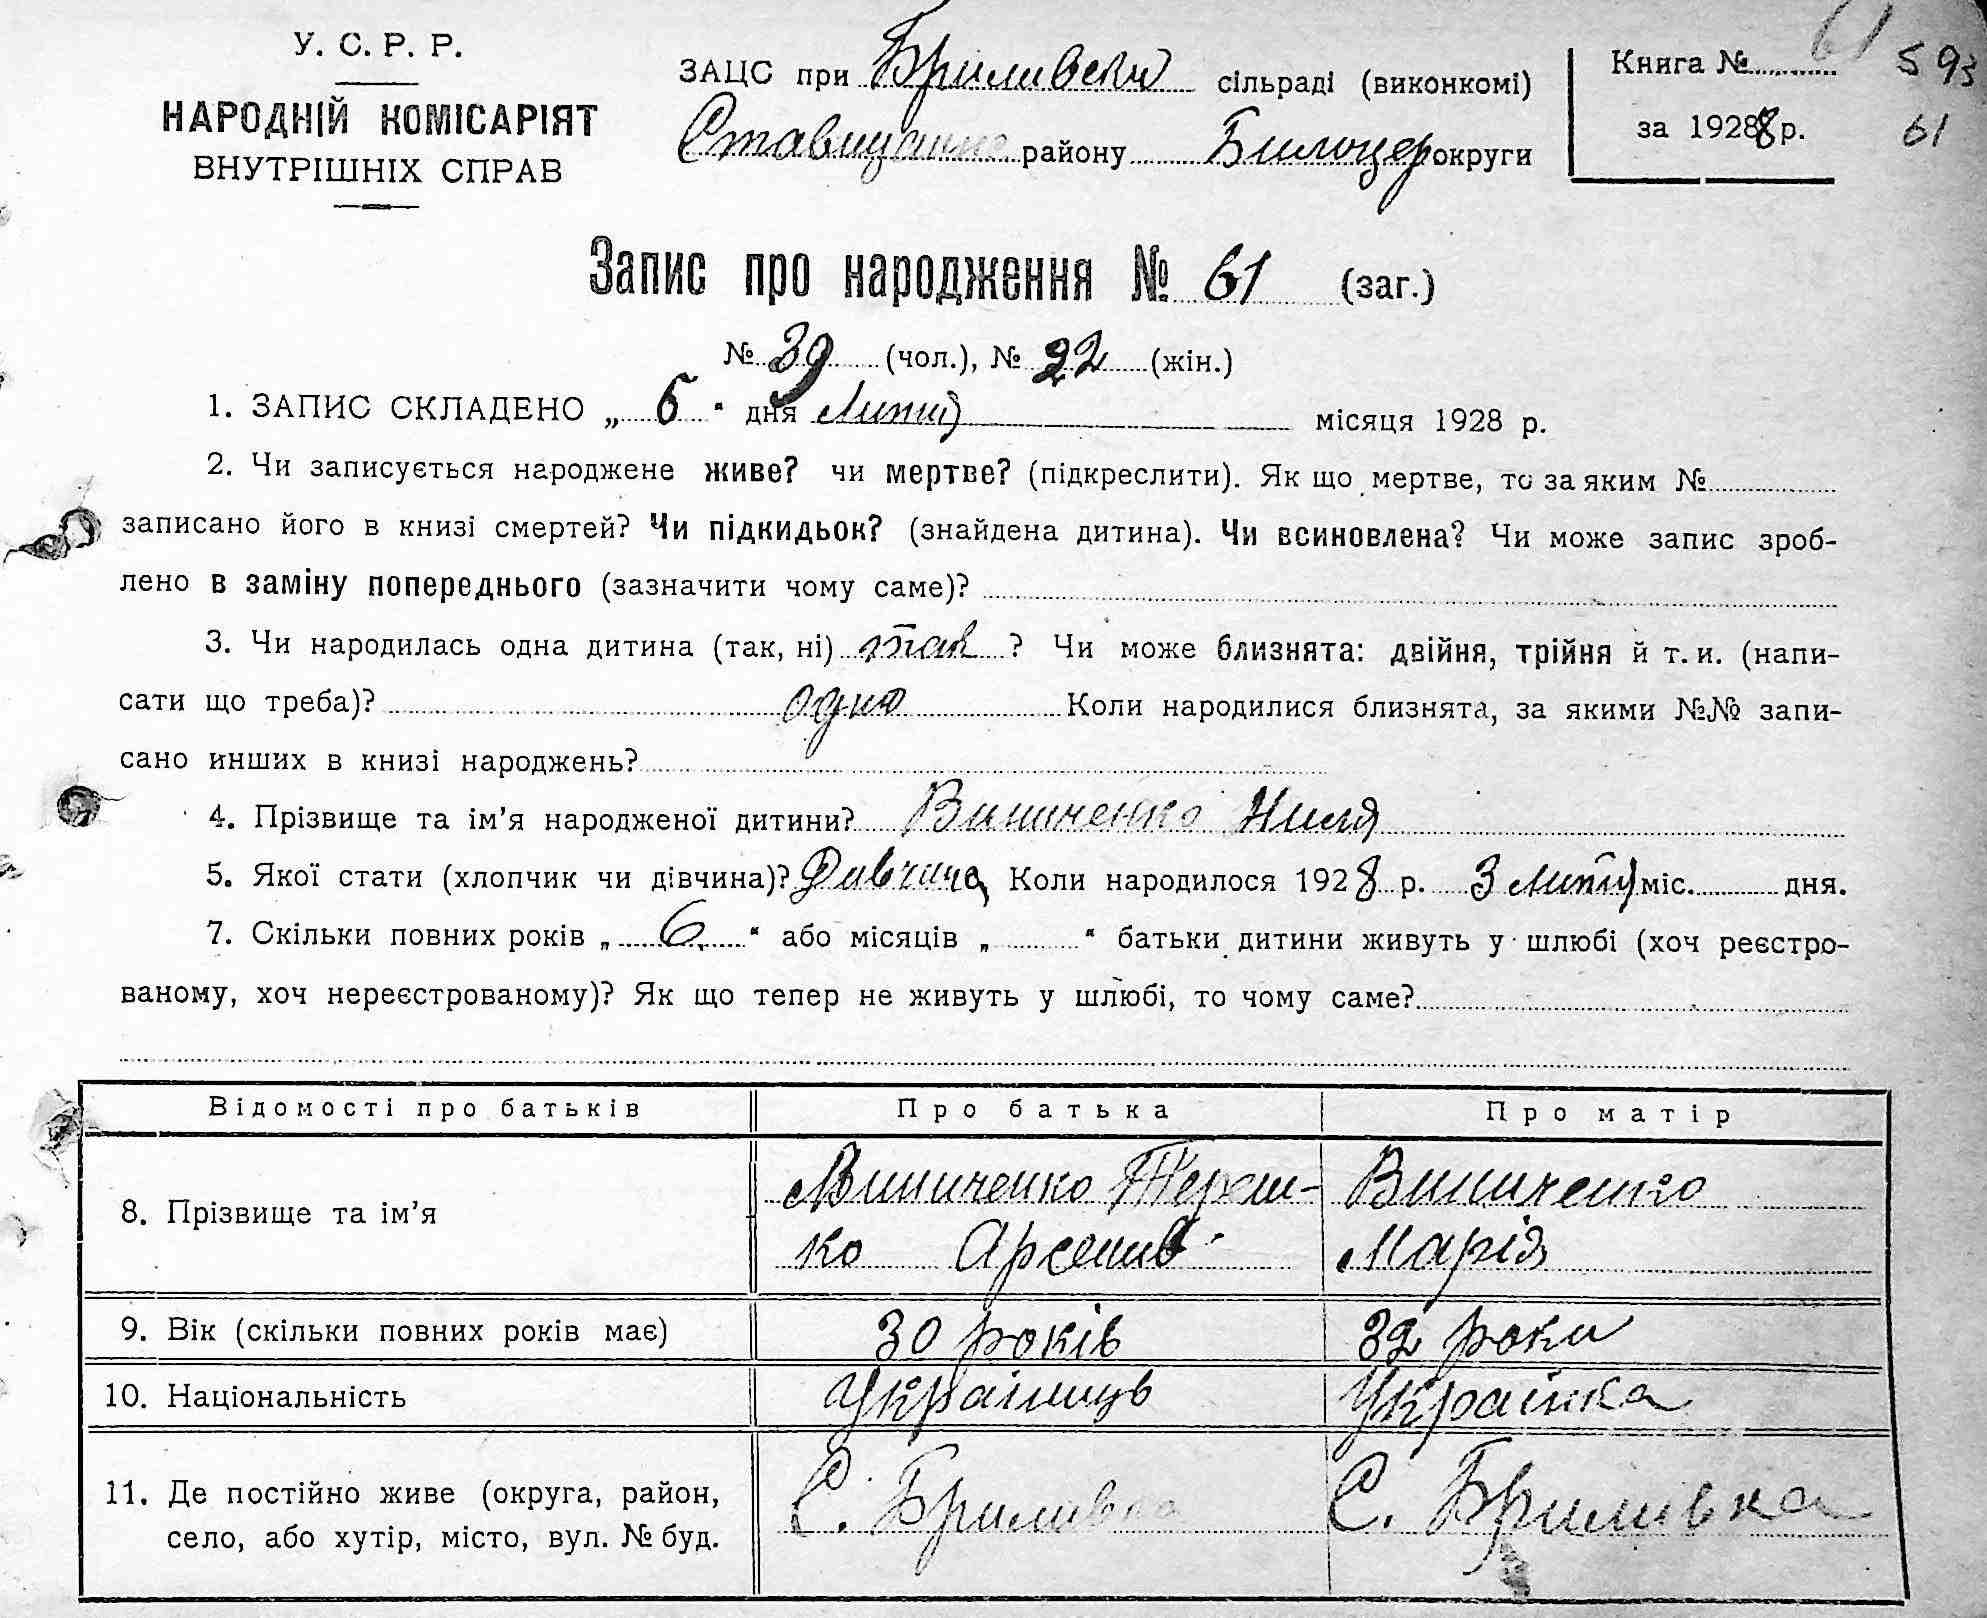 У. С. Р. Р.
НАРОДНІЙ КОМІСАРІЯТ
ВНУТРІШНІХ СПРАВ
ЗАЦС при Бриливский сільраді (виконкомі)
району Билоцер округи
Книга №
за 1928 р.
61
593
61
Запис про народження № 61 (заг.)
№ 39 (чол.), № 22 (жін.)
1. ЗАПИС СКЛАДЕНО „ 6 “ дня Липня місяця 1928 р.
2. Чи записується народжене живе? чи мертве? (підкреслити). Як що мертве, то за яким №
записано його в книзі смертей? Чи підкидьок? (знайдена дитина). Чи всиновлена? Чи може запис зроб-
лено в заміну попереднього (зазначити чому саме)?
3. Чи народилась одна дитина (так, ні) так ? Чи може близнята: двійня, трійня й т. и. (напи-
сати що треба)? одно Коли народилися близнята, за якими №№ запи-
сано инших в книзі народжень?
4. Прізвище та ім’я народженої дитини? Виниченко Ниля
5. Якої стати (хлопчик чи дівчина)? Дивчина Коли народилося 1928 р. 3 Липня міс. дня.
7. Скільки повних років „ 6 “ або місяців „ “ батьки дитини живуть у шлюбі (хоч реєстро-
ваному, хоч нереєстрованому)? Як що тепер не живуть у шлюбі, то чому саме?
Відомості про батьків Про батька Про матір
8. Прізвище та ім’я
Виниченко Тереш-
ко Арсенив
Виниченко
Марія
9. Вік (скільки повних років має) 30 років 32 роки
10. Національність Україниць Українка
11. Де постійно живе (округа, район,
село, або хутір, місто, вул. № буд.
С. Брилівка
С. Брилівка